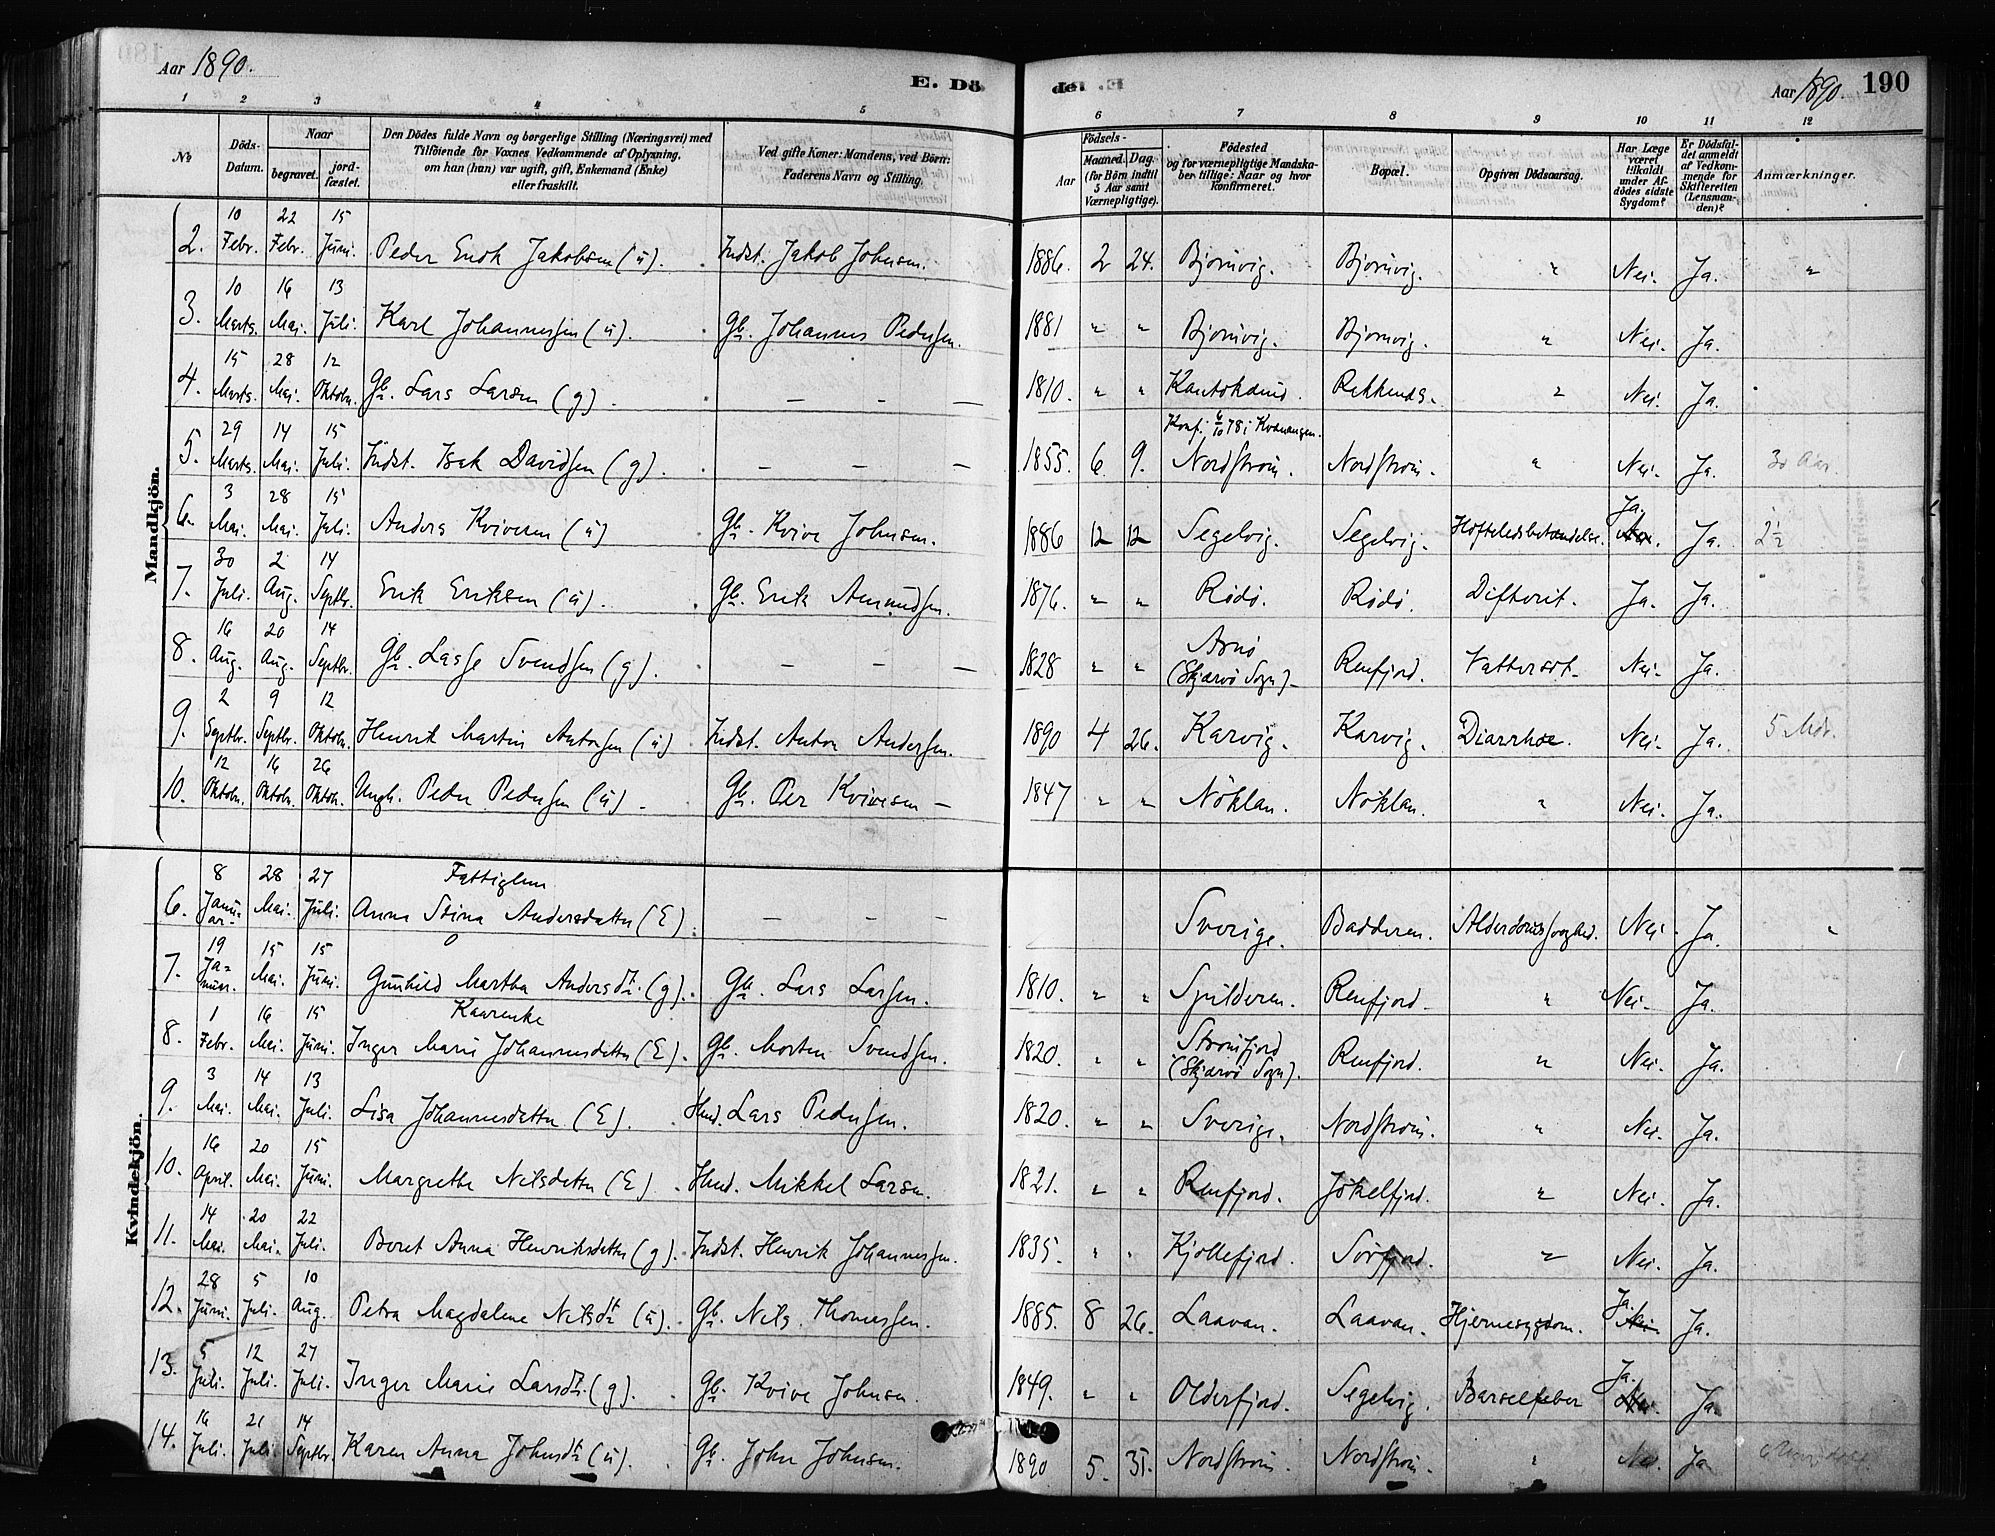 Aar 1890.
E. Döde.
Aar 1890. 190
1 2 3 4 5 6 7 8 9 10 11 12
No
Döds-Datum.
Naar begravet. jordfæstet.
Den Dödes fulde Navn og borgerlige Stilling (Næringsvei) med Tilföiende for Voxnes Vedkommende af Oplysning, om han (hun) var ugift, gift, Enkemand (Enke) eller fraskilt.
Ved gifte Koner: Mandens, ved Börn: Faderens Navn og Stilling.
Födsels- Aar Maaned. Dag. (for Börn indtil 5 Aar samt Værnepligtige).
Födested og for værnepligtige Mandskaber tillige: Naar og hvor konfirmeret.
Bopæl.
Opgiven Dödsaarsag.
Har Læge været tilkaldt under Afdödes sidste Sygdom?
Er Dödsfaldet anmeldt af Vedkommende for Skifteretten (Lensmanden)?
Anmærkninger.
Mandkjön.
2. 10 Febr. 22 Febr. 15 Juni. Peder Enok Jakobsen (ú). Indst. Jakob Johnsen. 1886. 2 24. Bjornvig. Bjornvig. " Nei. Ja. "
3. 10 Marts. 16 Mai. 13 Juli. Karl Johannessen (ú). Gb. Johannes Pedersen. 1881 " " Bjornvig. Bjornvig. " Nei. Ja.
4. 15 Marts. 28 Mai. 12 Oktobr. Gb. Lars Larsen (g). — — — 1810. " " Kautokeino. " Nei. Ja.
5. 29 Marts. 14 Mai. 15 Juli. Indst. Isak Davidsen (g). — — — 1855. 6. 9. Konf. 6/10 78 i Kvænangen. Nordstrøm. Nordstrøm. " Nei. Ja. 30 Aar.
6. 3 Mai. 28 Mai. 15 Juli. Anders Kvivesen (ú) Gb. Kvive Johnsen. 1886 12 12 Segelvig. Segelvig. Hofteledsbetændelse. Ja. Nei. Ja. 2 1/2
7. 30 Juli. 2 Aug. 14 Septbr. Erik Eriksen (ú). Gb. Erik Amundsen. 1876. " " Rødø. Rødø. Difterit. Ja. Ja.
8. 16 Aug. 20 Aug. 14 Septbr. Gb. Lasse Svendsen (g). — — — 1828 " " Arnø (Skjærvø Sogn). Renfjord. Vattersot. Nei. Ja.
9. 2 Septbr. 9 Septbr. 12 Oktobr. Henrik Martin Antonsen (ú) Indst. Anton Andersen. 1890 4 26. Karvig. Karvig. Diarrhoe. Nei. Ja. 5 Mdr.
10. 12 Oktobr. 16 Oktob. 26 Oktob. Ungk. Peder Pedersen (ú). Gb. Per Kvivesen — 1847 " " Nöklan. Nöklan. " Nei. Ja.
Kvindekjön.
6. 8 Januar 28 Mai. 27 Juli. Fattiglem Anna Stina Andersdatter (E). — — — Sverige. Badderen. Nei. Ja. "
7. 19 Januar. 15 Mai. 15 Juni. Gunhild Martha Andersdtr. (g). Gb. Lars Larsen. 1810. " " Spilderen. Renfjord. " Nei. Ja.
8. 1 Febr. 16 Mai. 15 Juni. Kaarenke Inger Marie Johannesdatter (E). Gb. Morten Svendsen. 1820. " " Strømfjord (Skjærvø Sogn). Renfjord. " Nei. Ja.
9. 3 Mai. 14 Mai. 13 Juli. Lisa Johannesdatter (E). Hmd. Lars Pedersen. 1820. " " Sverige. Nordstrøm. " Nei. Ja.
10. 16 April. 20 Mai. 15 Juni. Margrethe Nilsdatter (E). Hmd. Mikkel Larsen. 1821. " " Renfjord. Jökelfjord. " Nei. Ja.
11. 14 Mai. 20 Mai. 22 Juli. Beret Anna Henriksdatter (g). Indst. Henrik Johannessen. 1835. " " Kjöllefjord. Sörfjord. " Nei. Ja.
12. 28 Juni. 5 Juli. 10 Aug. Petra Magdalene Nilsdtr (ú). Gb. Nils Thomessen. 1885. 8 26. Laavan. Laavan. Hjernesygdom. Ja. Nei. Ja.
13. 5 Juli. 12 Juli. 27 Juli. Inger Marie Larsdtr. (g). Gb. Kvive Johnsen 1849. " " Olderfjord. Segelvig. Barselfeber Ja. Nei. Ja.
14. 16 Juli. 21 Juli. 14 Septbr. Karen Anna Johnsdtr (ú). Gb. John Johnsen. 1890 5. 31. Nordstrøm. Nordstrøm. " Nei. Ja